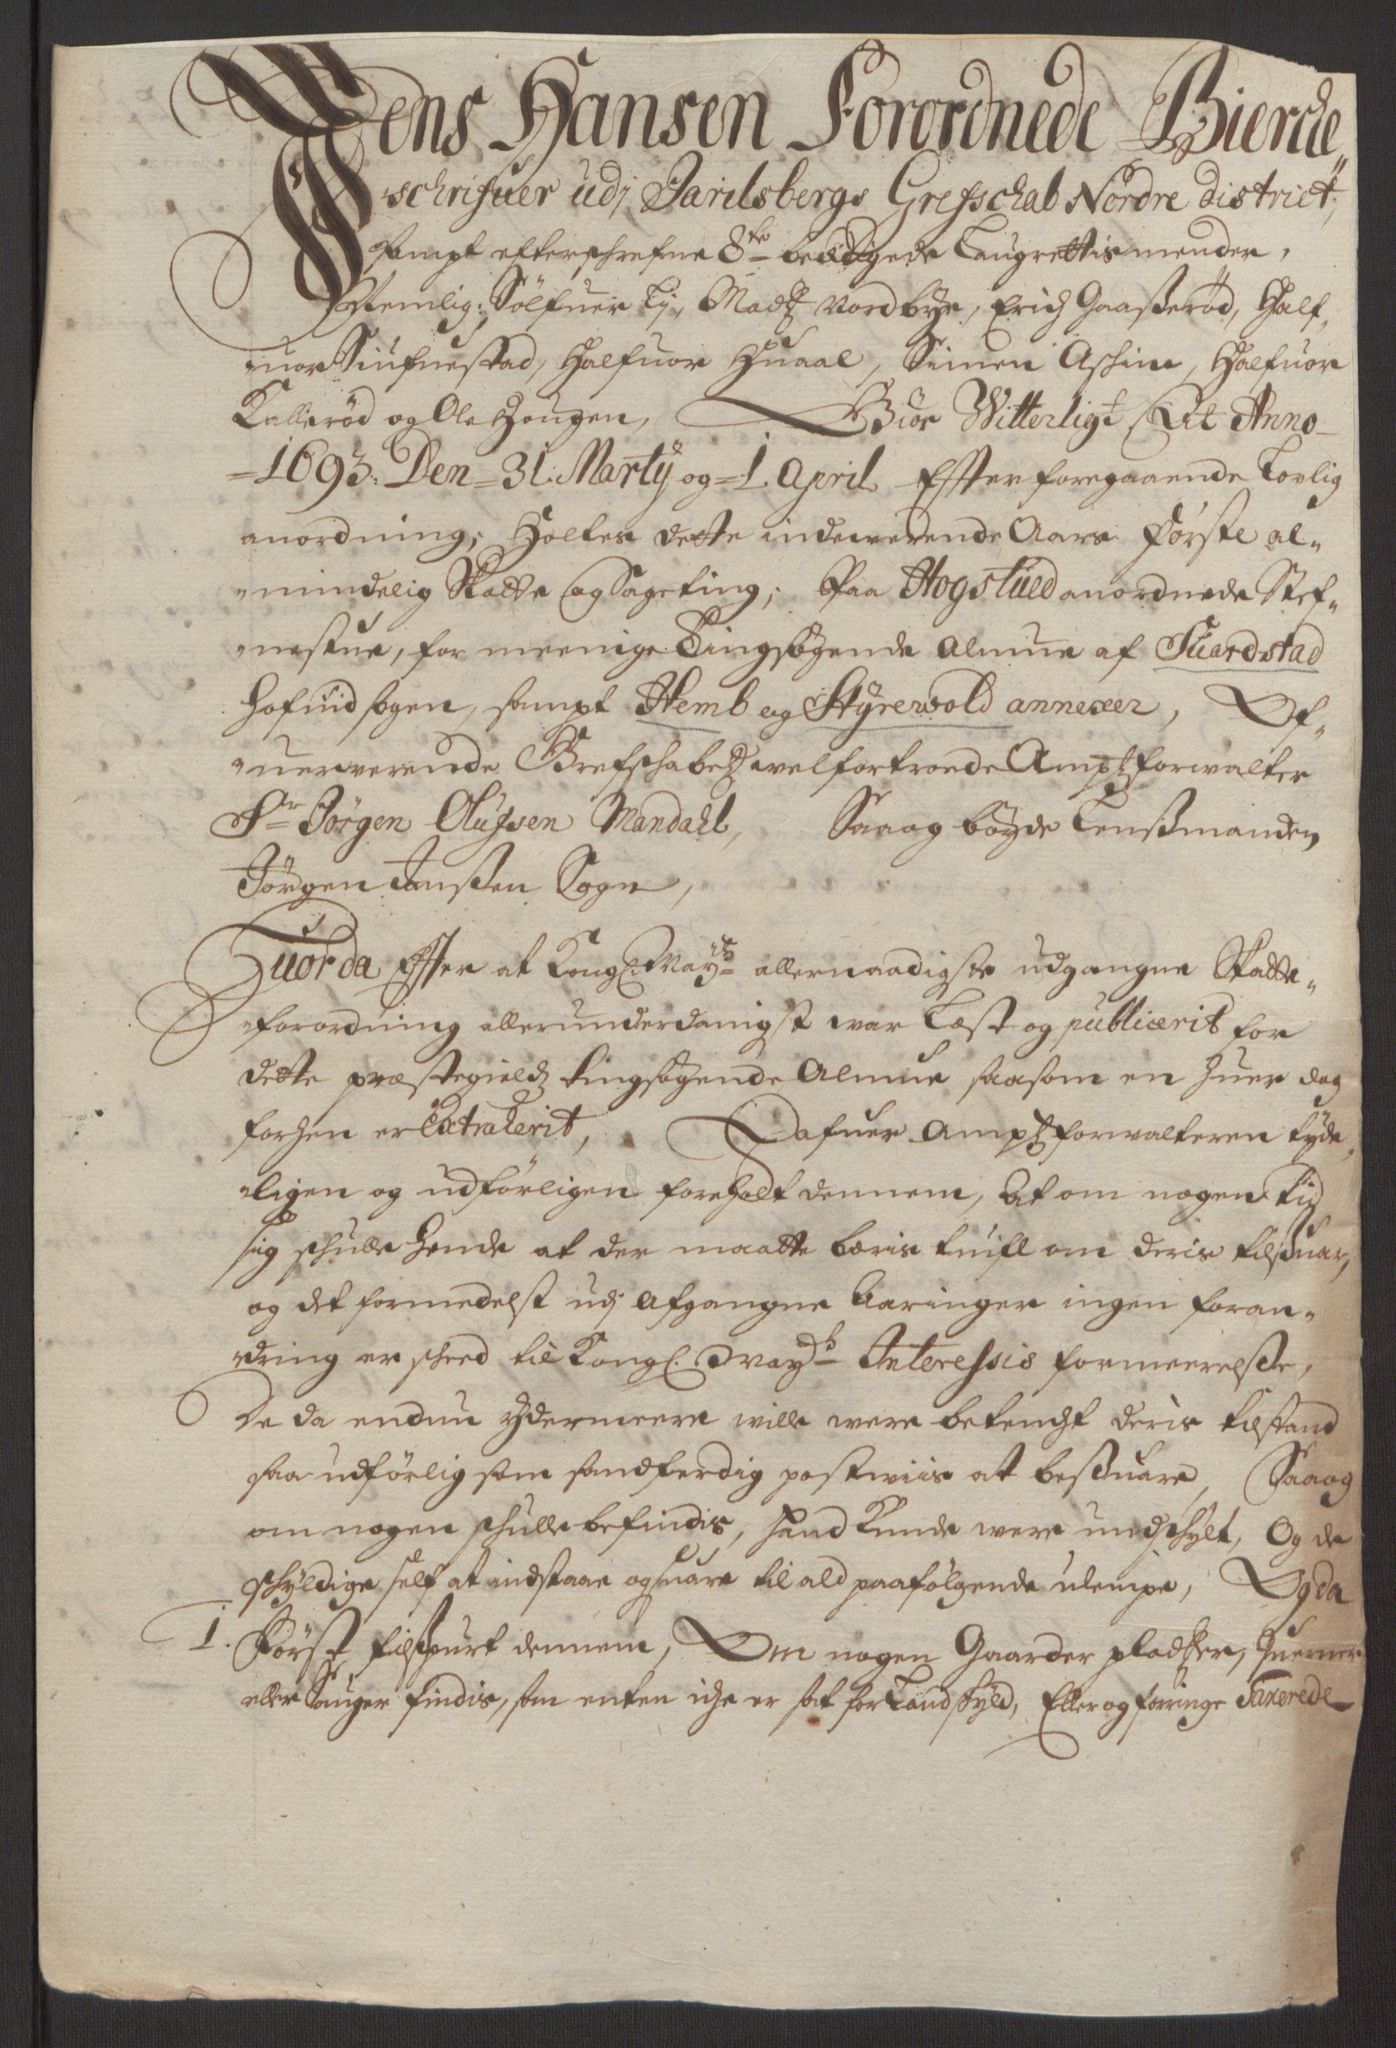 Jens Hansen Forordnede Bierde„
schrifuer udj Jarilsbergs Grefschab Nordre district,
sampt efterschrefne 8te beEdigede Laugrettis mender,
Nemlig: Sölfuer Ly, Madtz Nordbye, Erich Gaasserød, Half„
„uor Siufuestad, Halfuor Huaal, Simen Askim, Halfuor
Kallerød og Ole Hougen, Giör Witterligt At Anno
1693. Den 31. Martij og 1. April Effter foregaaende Lovlig
anordning, Holtes dette indeverende Aars første al„
„mindelig Skatte og Sageting, Paa Hogstued anordnede Stef„
„nestue, for meenige Tingsøgende Almue af Suardstad
Hofuidsogen, sampt Hemb og Styrewold annexer, Of„
„uerverende Grefschabetz welfortroede Amptzforwalter
Sr Jörgen Olufsen Mandahl, Saaog böyde Lenssmanden
Jörgen Jenssen Sogn,
Huorda Effter at Kongl. Mayts allernaadigste udgangne Skatte„
„forordning allerunderdanigst war Læst og publicerit for
dette præstegieldz tingsøgende Almue saasom en huer dag
forhen er Extraherit, Dafuer Amptzforwalteren tyde„
„ligen og udförligen foreholt dennem, At om nogen tid
sig schulle hende at der maatte bæris tuifl om deris tilssuar,
og det formedelst udj afgangne Aaringer ingen foran„
dring er scheed til Kongl. Mayts Interessis formeerelsse,
De da endnu ydermeere wille were betencht deris tilstand
saa udförlig som sandferdig postwiis at bessuare, Saaog
om nogen schulle befindis, hand kunde were undschylt, Og de
schyldige self at indstaae og suare til ald paafølgende ulempe, Og da
1. Først tilssport dennem, Om nogen Gaarder pladtzer, Querner
eller Sauger findis, som enten iche er sat for Landskyld, Eller og for ringe Taxerede